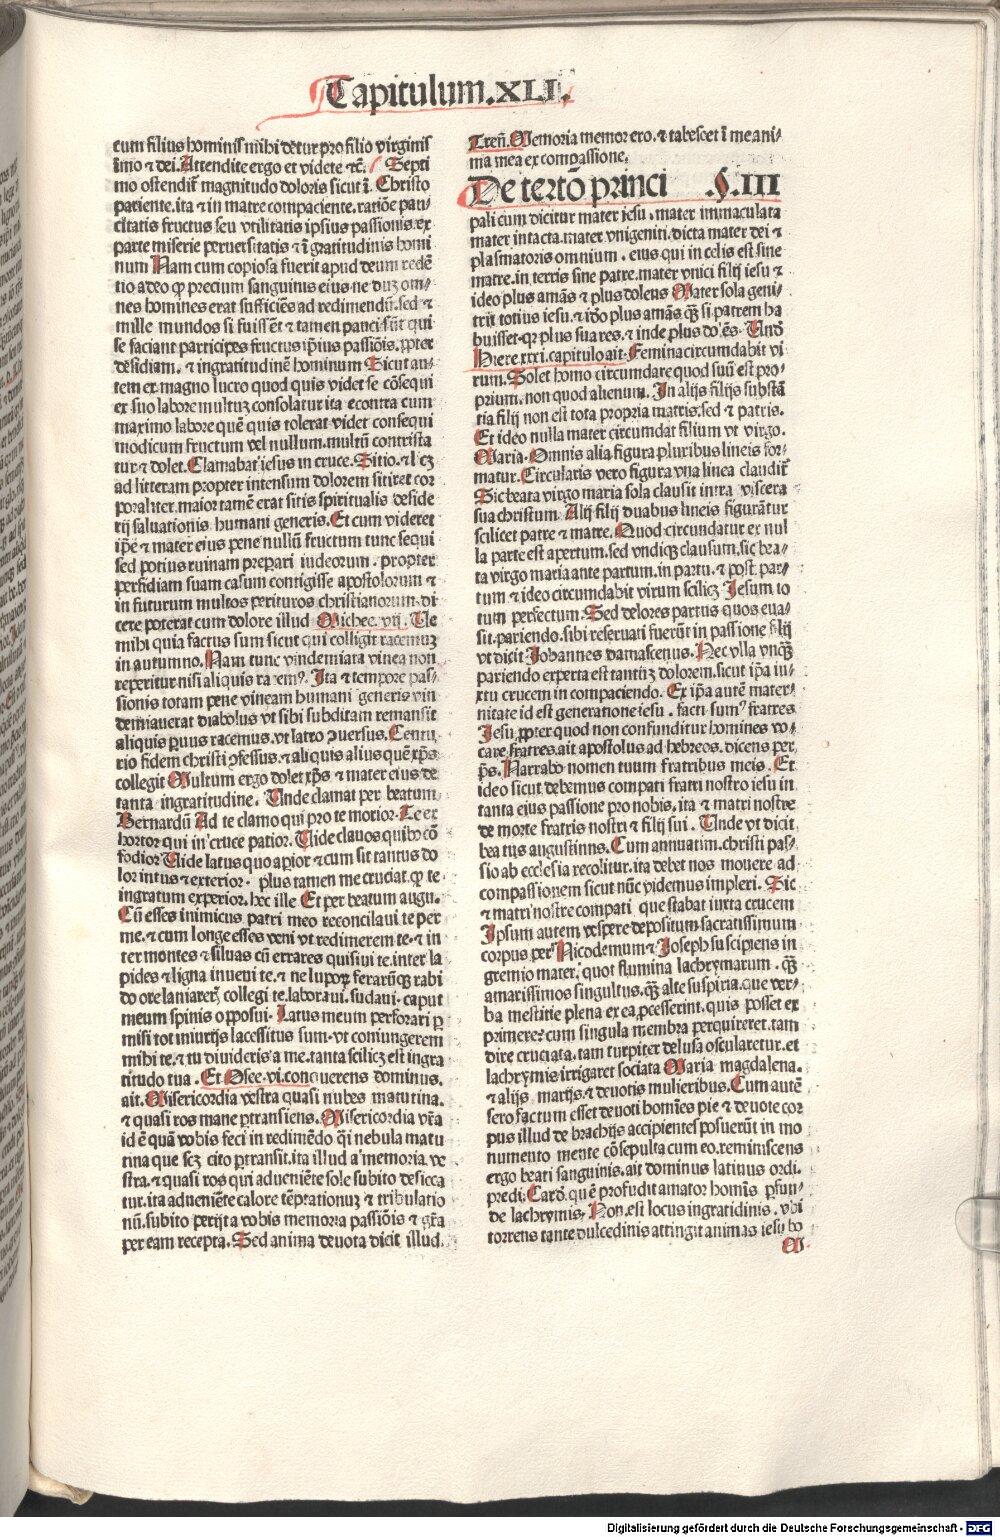 Capitulum .XLI.
cum filius hominis mihi detur pro filio virginis
īmo ⁊ dei. Attendite ergo et videte ⁊c̄. Septi
mo ostendit̄ magnitudo doloris sicut ī Christo
patiente. ita ⁊ in matre compaciente. ratiōe pau
citatis fructus seu vtilitatis ipsius passionis. ex
parte miserie peruersitatis ⁊ īgratitudinis homi
num Nam cum copiosa fuerit apud deum redē
tio adeo qp precium sanguinis eius ne dum om-
nes homines erat sufficiēs ad redimendū. sed ⁊
mille mundos si fuissēt ⁊ tamen pauci sūt qui
se faciant participes fructus ip̄ius passiōis. ꝓpter
desidiam. ⁊ ingratitudinē hominum Sicut au-
tem ex magno lucro quod quis videt se cōsequi
ex suo labore multuꝫ consolatur ita econtra cum
maximo labore quē quis tolerat videt consequi
modicum fructum vel nullum. multū contrista
tur ⁊ dolet. Clamabat iesus in cruce. Sitio. ⁊ lꝫ
ad litteram propter intensum dolorem sitiret cor
poraliter. maior tamē erat sitis spiritualis deside
rij saluationis humani generis. Et cum videret
ip̄e ⁊ mater eius pene nullū fructum tunc sequi
sed potius ruinam prepari iudeorum. propter
perfidiam suam casum contigisse apostolorum ⁊
in futurum multos perituros christianorum. di
cere poterat cum dolore illud Michee. vij. Ue
mihi quia factus sum sicut qui colligit racemuꝫ
in autumno. Nam tunc vindemiata vinea non
reperitur nisi aliquis racem⁹. Ita ⁊ tempore pas-
sionis totam pene vineam humani generis vin
demiauerat diabolus vt sibi subditam remansit
aliquis paruus racemus. vt latro ꝯuersus. Centu
rio fidem christi ꝯfessus. ⁊ aliquis alius quē xp̄s
collegit Multum ergo dolet xp̄s ⁊ mater eius de
tanta ingratitudine. Unde clamat per beatum
Bernardū Ad te clamo qui pro te morior. Te ex
hortor qui in cruce patior. Uide clauos quibꝰ cō
fodior Uide latus quo aꝑior ⁊ cum sit tantus do
lor intus ⁊ exterior. plus tamen me cruciat. qp te
ingratum experior. hec ille Et per beatum augu.
Cū esses inimicus patri meo reconcilaui te per
me. ⁊ cum longe esses veni vt redimerem te. ⁊ in
ter montes ⁊ siluas cū errares quisiui te. inter la
pides ⁊ ligna inueni te. ⁊ ne luporꝝ ferarūqꝫ rabi
do ore laniarerꝭ collegi te. laboraui. sudaui. caput
meum spinis opposui. Latus meum perforari ꝑ
misi tot iniurijs lacessitus sum. vt coniungerem
mihi te. ⁊ tu diuideris a me. tanta scilicꝫ est ingra
titudo tua. Et Osee. vi. conquerens dominus.
ait. Misericordia vestra quasi nubes matutina.
⁊ quasi ros mane ꝑtransiens. Misericordia vr̄a
id ē quā vobis feci in redimēdo q̄i nebula matu
tina que scꝫ cito ꝑtransit. ita illud a memoria ve
stra. ⁊ quasi ros qui adueniēte sole subito desicca
tur. ita adueniēte calore tēptationuꝫ ⁊ tribulatio
nū. subito perijt a vobis memoria passiōis ⁊ gr̄a
per eam recepta. Sed anima deuota dicit illud.
Tren̄. Memoria memor ero. ⁊ tabescet ī me ani-
ma mea ex compassione.
De tertō princi .§. III
pali cum dicitur mater iesu. mater immaculata
mater intacta. mater vnigeniti. dicta mater dei ⁊
plasmatoris omnium. eius qui in celis est sine
matre. in terris sine patre. mater vnici filij iesu ⁊
ideo plus amās ⁊ plus dolens Mater sola geni-
trix totius iesu. ⁊ ido plus amās. qꝫ si patrem ha
buisset. qꝛ plus sua res. ⁊ inde plus dolēs. Und̄
Hiere. xxxi. capitulo ait. Femina circumdabit vi
rum. Solet homo circumdare quod suū est pro-
prium. non quod alienum. In alijs filijs substā
tia filij non est tota propria matris. sed ⁊ patris.
Et ideo nulla mater circumdat filium vt virgo.
Maria. Omnis alia figura pluribus lineis for-
matur. Circularis vero figura vna linea claudit̄
Sic beata virgo maria sola clausit intra viscera
sua christum. Alij filij duabus lineis figurātur
scilicet patre ⁊ matre. Quod circundatur ex nul
la parte est apertum. sed vndiqꝫ clausum. sic bea-
ta virgo maria ante partum. in partu. ⁊ post par-
tum ⁊ ideo circumdabit virum scilicꝫ Iesum to
tum perfectum. Sed dolores partus quos eua-
sit. pariendo. sibi reseruati fuerūt in passione filij
vt dicit Johannes damascenus. Nec vlla vnqꝫ
pariendo experta est tantuꝫ dolorem. sicut ip̄a iu-
xtu crucem in compaciendo. Ex ip̄a autē mater-
nitate id est generatione iesu. facti sum⁹ fratres
Iesu ꝓpter quod non confunditur homines vo-
care fratres. ait apostolus ad hebreos. dicens per
p̄s. Narrabo nomen tuum fratribus meis. Et
ideo sicut debemus compati fratri nostro iesu in
tanta eius passione pro nobis. ita ⁊ matri nostre
de morte fratris nostri ⁊ filij sui. Unde vt dicit
beatus augustinus. Cum annuatim. christi pas-
sio ab ecclesia recolitur. ita debet nos mouere ad
compassionem sicut nūc videmus impleri. Sic
⁊ matri nostre compati que stabat iuxta crucem
Ipsum autem vespere depositum sacratissimum
corpus per Nicodemum ⁊ Joseph suscipiens in
gremio mater. quot flumina lachrymarum. qꝫ
amarissimos singultus. qꝫ alte suspiria. que ver-
ba mestitie plena ex ea ꝓcesserint. quis posset ex
primere? cum singula membra perquireret. tam
dire cruciata. tam turpiter delusa oscularetur. et
lachrymis irrigaret sociata Maria magdalena.
⁊ alijs marijs. ⁊ deuotis mulieribus. Cum autē
sero factum esset deuoti homīes pie ⁊ deuote cor
pus illud de brachijs accipientes posuerūt in mo
numento mente cōsepulta cum eo. reminiscens
ergo beati sanguinis. ait dominus latinus ordi.
predi. Card̄. quē profudit amator homīs ꝓfun-
de lachrymis. Non est locus ingratidinis. vbi
torrens tante dulcedinis attingit animas iesu bo